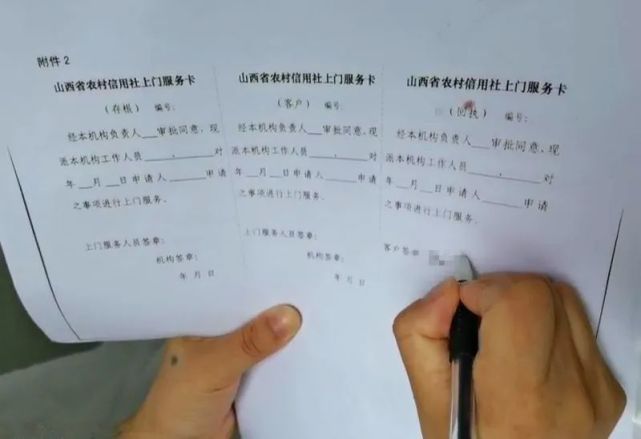 附件2
山西省农村信用社上门服务卡
（存根） 编号：
经本机构负责人___审批同意，现
派本机构工作人员______，______对
年___月___日申请人______申请
之事项进行上门服务。
上门服务人员签章：
机构签章：
年 月 日
山西省农村信用社上门服务卡
（客户） 编号：
经本机构负责人___审批同意，现
派本机构工作人员______，______对
年___月___日申请人______申请
之事项进行上门服务。
上门服务人员签章：
机构签章：
年 月 日
山西省农村信用社上门服务卡
（回执） 编号：
经本机构负责人___审批同意，现
派本机构工作人员______，______对
年___月___日申请人______申请
之事项进行上门服务。
客户签章